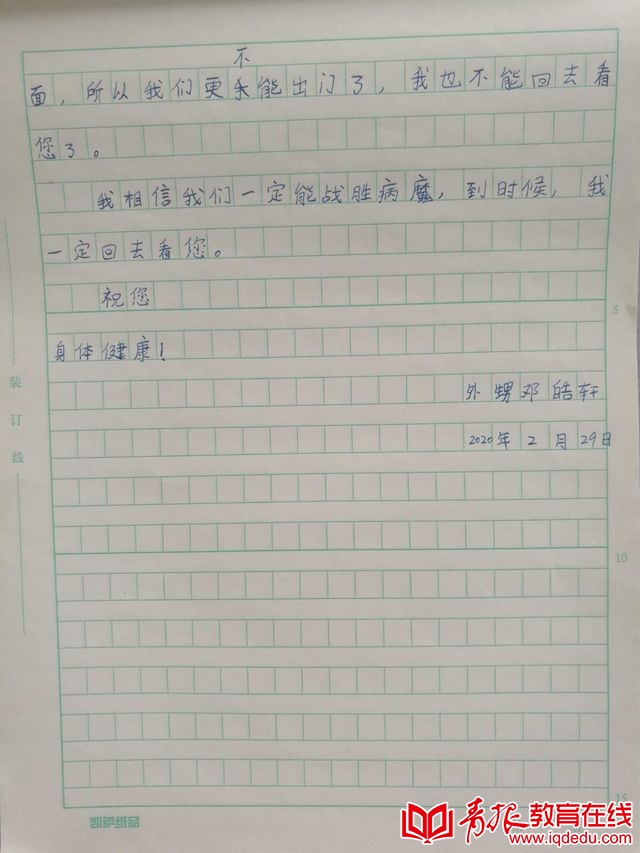 不
面，所以我们更能出门了，我也不能回去看
您了。
我相信我们一定能战胜病魔，到时候，我
一定回去看您。
祝您
身体健康！
外甥邓皓轩
2020年2月29日
5
10
15
装订线
凯萨纸品
青报教育在线
www.iqdedu.com